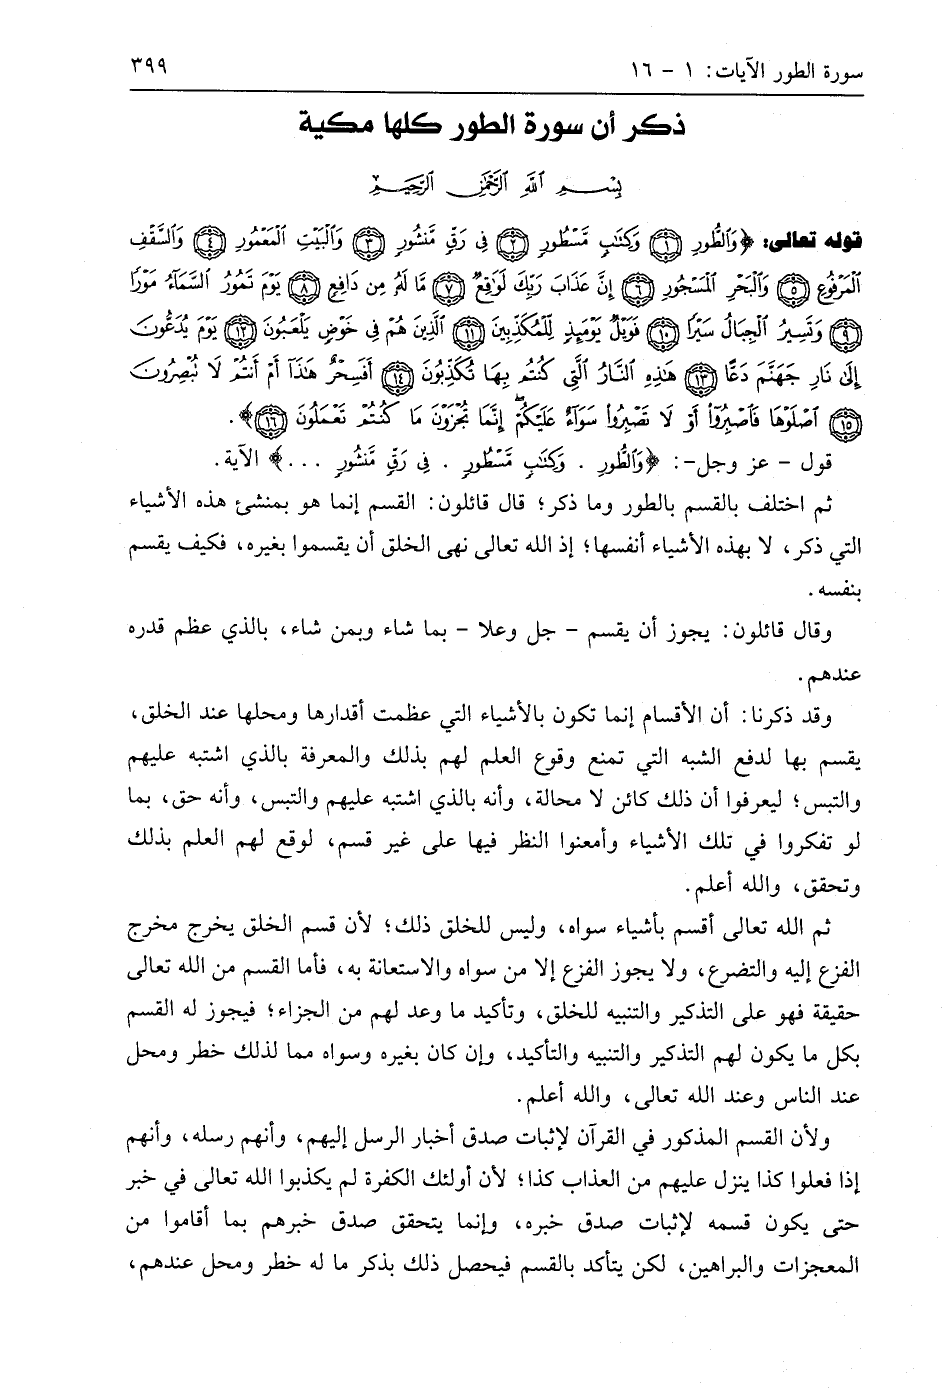 سورة الطور الآيات: ١ - ١٦ ٣٩٩
ذكر أن سورة الطور كلها مكية
بِسْمِ اللَّهِ الرَّحْمَٰنِ الرَّحِيمِ
قوله تعالى: ﴿وَالطُّورِ ۝١ وَكِتَٰبٍ مَّسْطُورٍ ۝٢ فِي رَقٍّ مَّنشُورٍ ۝٣ وَالْبَيْتِ الْمَعْمُورِ ۝٤ وَالسَّقْفِ
الْمَرْفُوعِ ۝٥ وَالْبَحْرِ الْمَسْجُورِ ۝٦ إِنَّ عَذَابَ رَبِّكَ لَوَٰقِعٌ ۝٧ مَّا لَهُ مِن دَافِعٍ ۝٨ يَوْمَ تَمُورُ السَّمَاءُ مَوْرًا
۝٩ وَتَسِيرُ الْجِبَالُ سَيْرًا ۝١٠ فَوَيْلٌ يَوْمَئِذٍ لِّلْمُكَذِّبِينَ ۝١١ الَّذِينَ هُمْ فِي خَوْضٍ يَلْعَبُونَ ۝١٢ يَوْمَ يُدَعُّونَ
إِلَىٰ نَارِ جَهَنَّمَ دَعًّا ۝١٣ هَٰذِهِ النَّارُ الَّتِي كُنتُم بِهَا تُكَذِّبُونَ ۝١٤ أَفَسِحْرٌ هَٰذَا أَمْ أَنتُمْ لَا تُبْصِرُونَ
۝١٥ اصْلَوْهَا فَاصْبِرُوا أَوْ لَا تَصْبِرُوا سَوَاءٌ عَلَيْكُمْ إِنَّمَا تُجْزَوْنَ مَا كُنتُمْ تَعْمَلُونَ ۝١٦﴾.
قول - عز وجل-: ﴿وَالطُّورِ . وَكِتَٰبٍ مَّسْطُورٍ . فِي رَقٍّ مَّنشُورٍ ...﴾ الآية.
ثم اختلف بالقسم بالطور وما ذكر؛ قال قائلون: القسم إنما هو بمنشئ هذه الأشياء
التي ذكر، لا بهذه الأشياء أنفسها؛ إذ الله تعالى نهى الخلق أن يقسموا بغيره، فكيف يقسم
بنفسه.
وقال قائلون: يجوز أن يقسم - جل وعلا - بما شاء وبمن شاء، بالذي عظم قدره
عندهم.
وقد ذكرنا: أن الأقسام إنما تكون بالأشياء التي عظمت أقدارها ومحلها عند الخلق،
يقسم بها لدفع الشبه التي تمنع وقوع العلم لهم بذلك والمعرفة بالذي اشتبه عليهم
والتبس؛ ليعرفوا أن ذلك كائن لا محالة، وأنه بالذي اشتبه عليهم والتبس، وأنه حق، بما
لو تفكروا في تلك الأشياء وأمعنوا النظر فيها على غير قسم، لوقع لهم العلم بذلك
وتحقق، والله أعلم.
ثم الله تعالى أقسم بأشياء سواه، وليس للخلق ذلك؛ لأن قسم الخلق يخرج مخرج
الفزع إليه والتضرع، ولا يجوز الفزع إلا من سواه والاستعانة به، فأما القسم من الله تعالى
حقيقة فهو على التذكير والتنبيه للخلق، وتأكيد ما وعد لهم من الجزاء؛ فيجوز له القسم
بكل ما يكون لهم التذكير والتنبيه والتأكيد، وإن كان بغيره وسواه مما لذلك خطر ومحل
عند الناس وعند الله تعالى، والله أعلم.
ولأن القسم المذكور في القرآن لإثبات صدق أخبار الرسل إليهم، وأنهم رسله، وأنهم
إذا فعلوا كذا ينزل عليهم من العذاب كذا؛ لأن أولئك الكفرة لم يكذبوا الله تعالى في خبر
حتى يكون قسمه لإثبات صدق خبره، وإنما يتحقق صدق خبرهم بما أقاموا من
المعجزات والبراهين، لكن يتأكد بالقسم فيحصل ذلك بذكر ما له خطر ومحل عندهم،